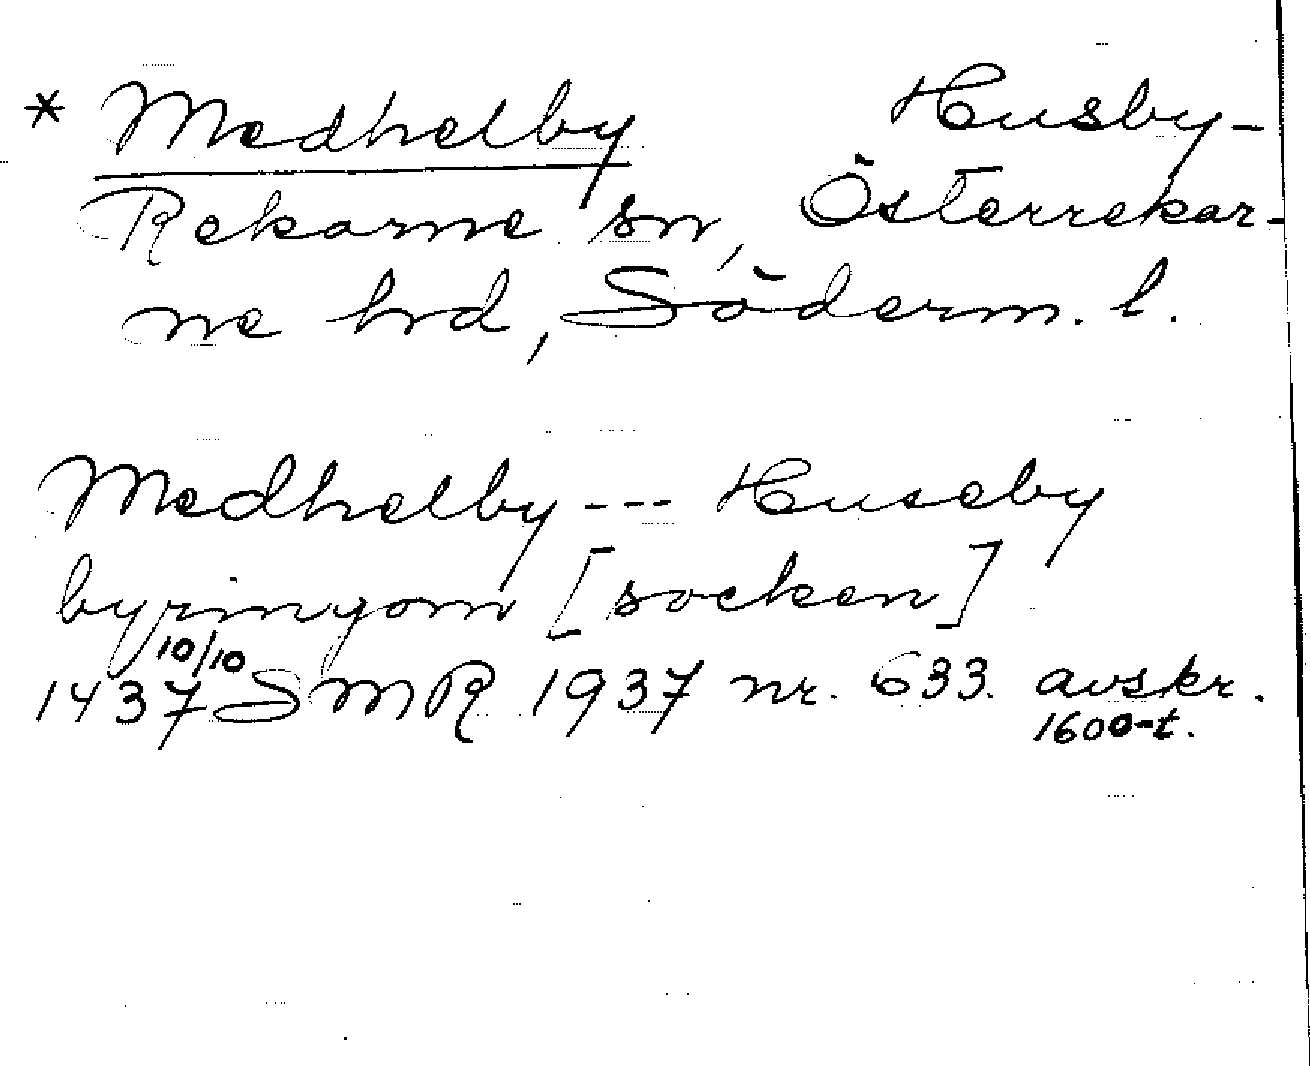 * Medhelby Husby-
Rekarne sn, Österrekar-
ne hrd, Söderm. l.
Medhelby --- Huseby
byringom [socken]
1437 10/10 SMR 1937 nr. 633. avskr.
1600-t.